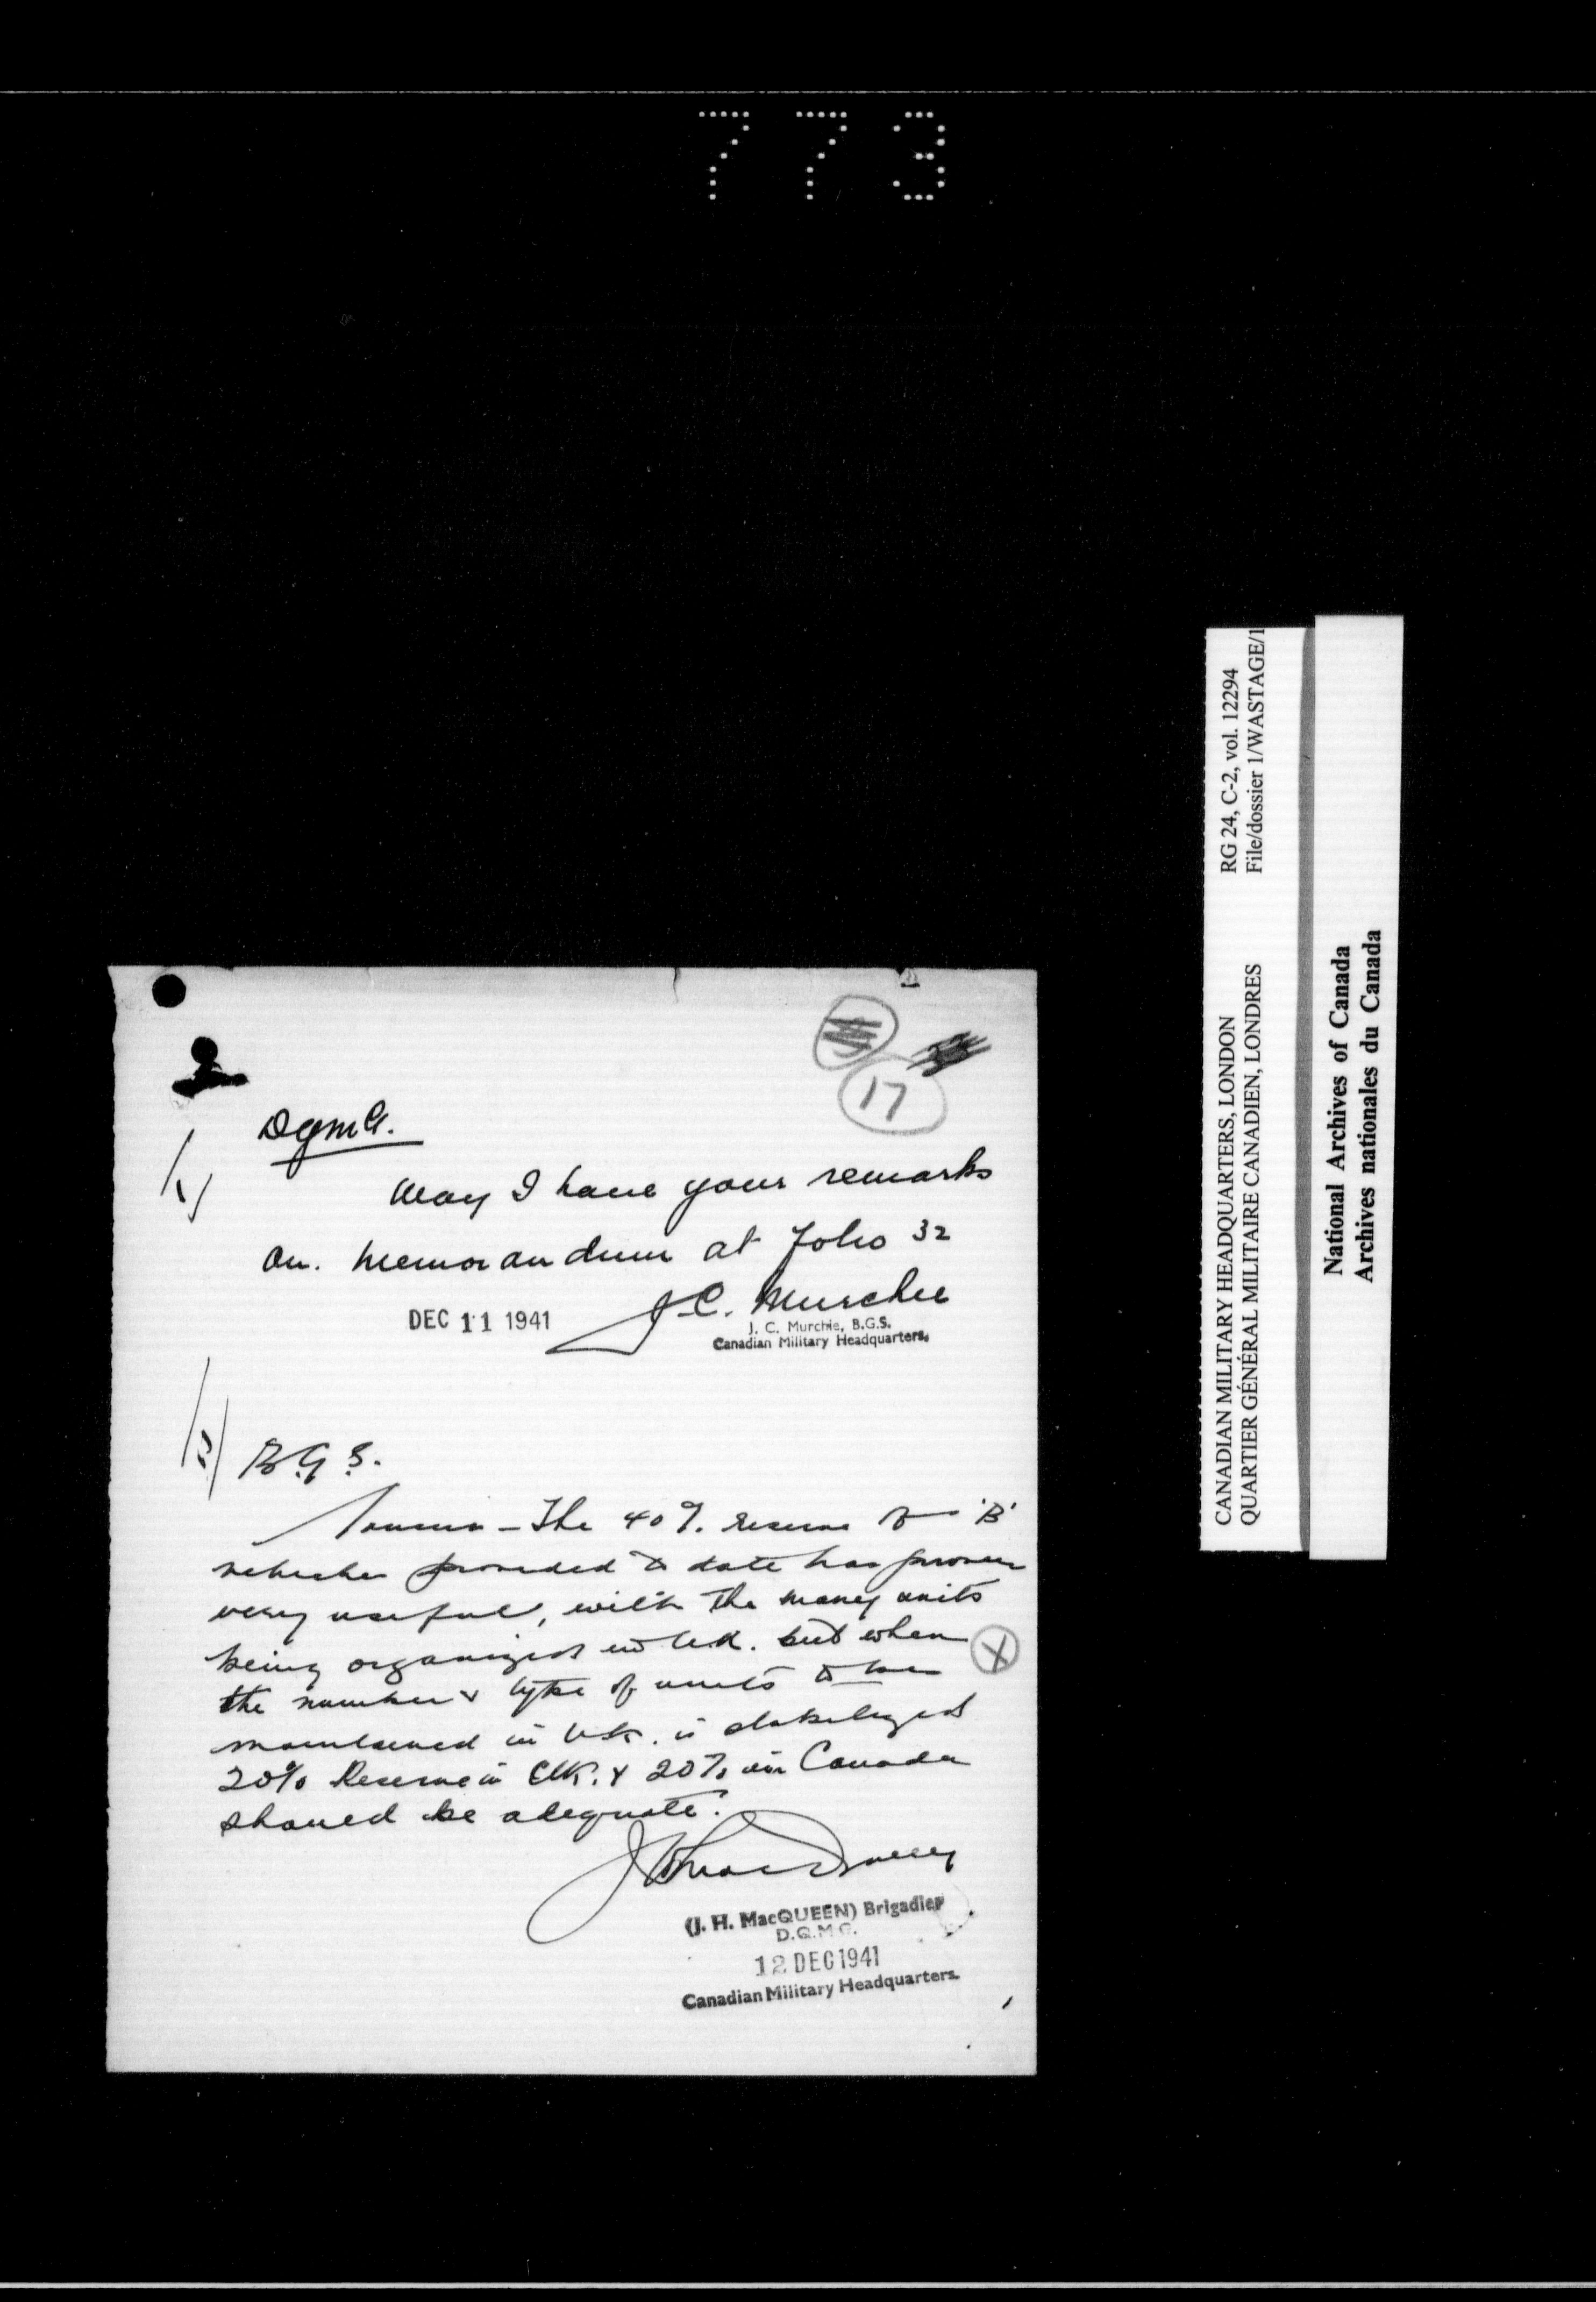 773
17
DQMG.
1/
May I have your remarks
on. Memorandum at Folio 32
J.C. Murchie
DEC 11 1941
J. C. Murchie, B.G.S.
Canadian Military Headquarters.
2/
B.G.S.
The 40% reserve of 'B'
vehicles provided to date has proven
very useful, with the many units
being organized in U.K. but when
X
the number & type of units to be
maintained in U.K. is stabilized
20% Reserve in U.K. & 20% in Canada
should be adequate.
(J. H. MacQUEEN) Brigadier
D.Q.M.G.
12 DEC 1941
Canadian Military Headquarters.
CANADIAN MILITARY HEADQUARTERS, LONDON
QUARTIER GÉNÉRAL MILITAIRE CANADIEN, LONDRES
RG 24, C-2, vol. 12294
File/dossier 1/WASTAGE/1
National Archives of Canada
Archives nationales du Canada